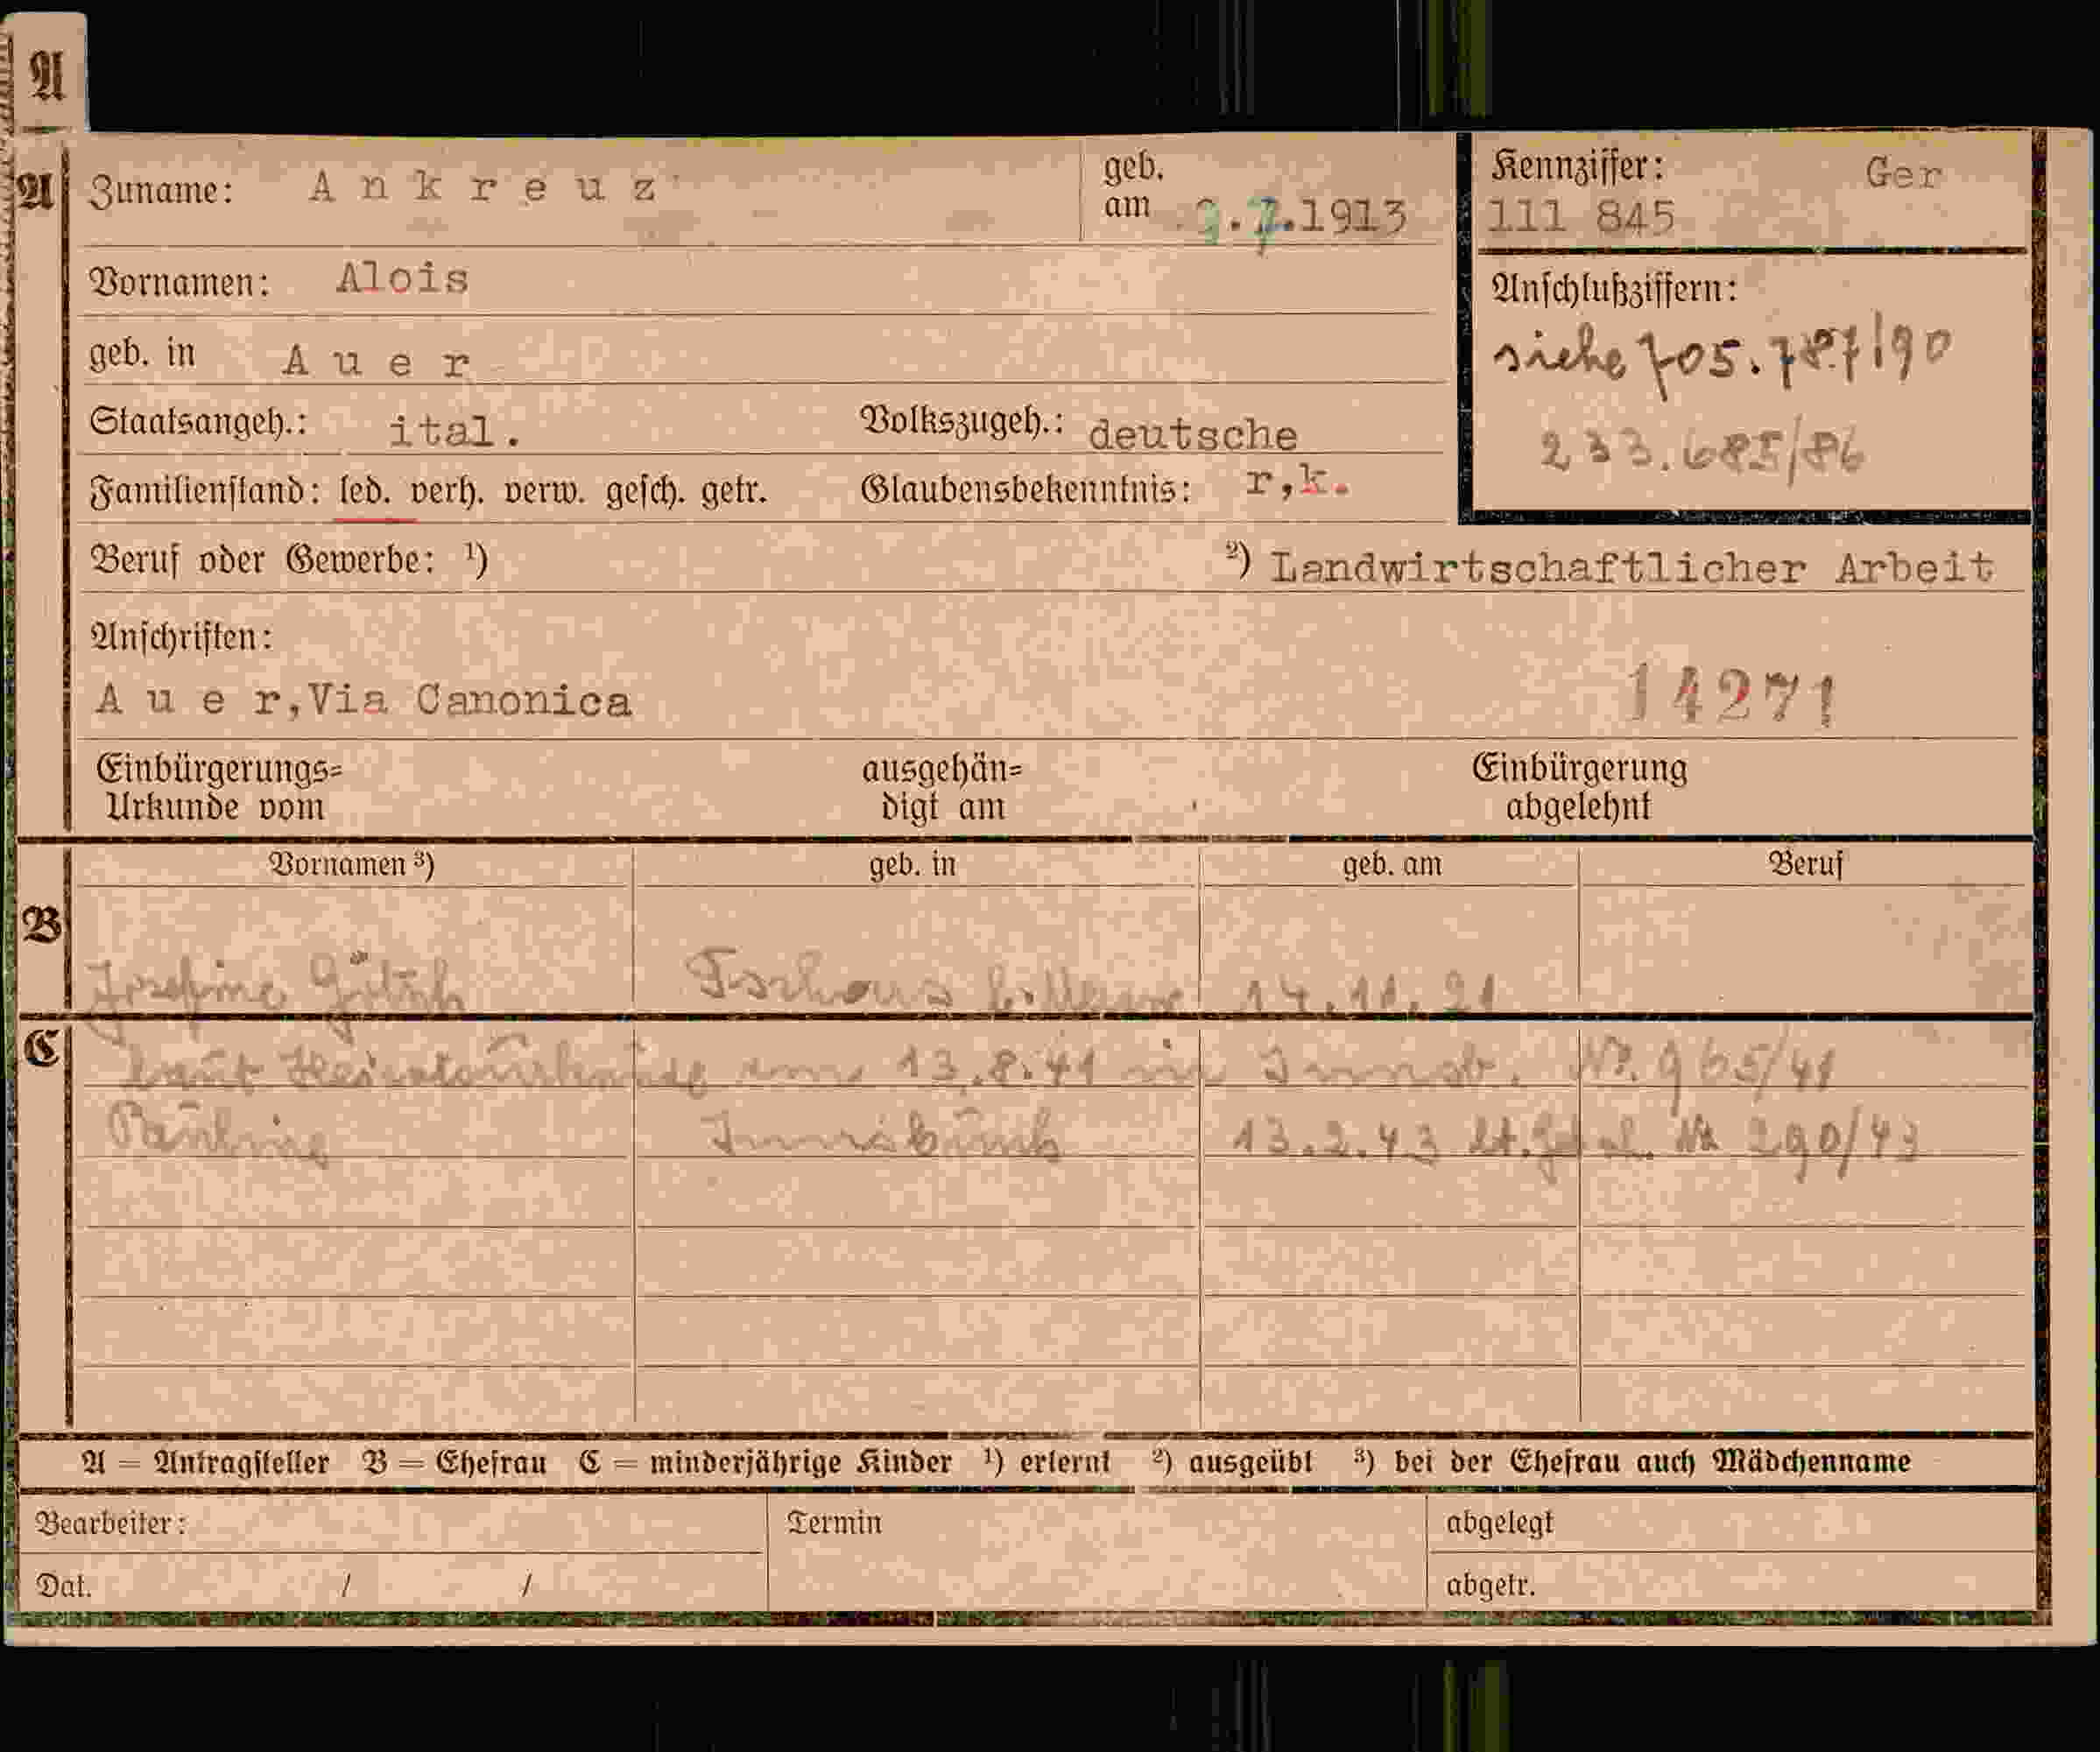 A
A
Zuname: Ankreuz
geb. am .7.1913
Kennziffer: Ger
111 845
Vornamen: Alois
Anschlußziffern:
siehe 705.787/90
233.685/86
geb. in Auer
Staatsangeh.: ital. Volkszugeh.: deutsche
Familienstand: led. verh. verw. gesch. getr. Glaubensbekenntnis: r,k.
Beruf oder Gewerbe: ¹) ²) Landwirtschaftlicher Arbeit
Anschriften:
Auer,Via Canonica
14271
Einbürgerungs=
Urkunde vom
ausgehän=
digt am
Einbürgerung
abgelehnt
B
Vornamen ³) geb. in geb. am Beruf
Josefine 14.11.21
C
laut Heiratsurkunde vom 13.8.41 in Innsb. Nr. 965/41
Pauline Innsbruck 13.2.43 lt. Nr 290/43
A = Antragsteller B = Ehefrau C = minderjährige Kinder ¹) erlernt ²) ausgeübt ³) bei der Ehefrau auch Mädchenname
Bearbeiter: Termin abgelegt
Dat. / / abgetr.